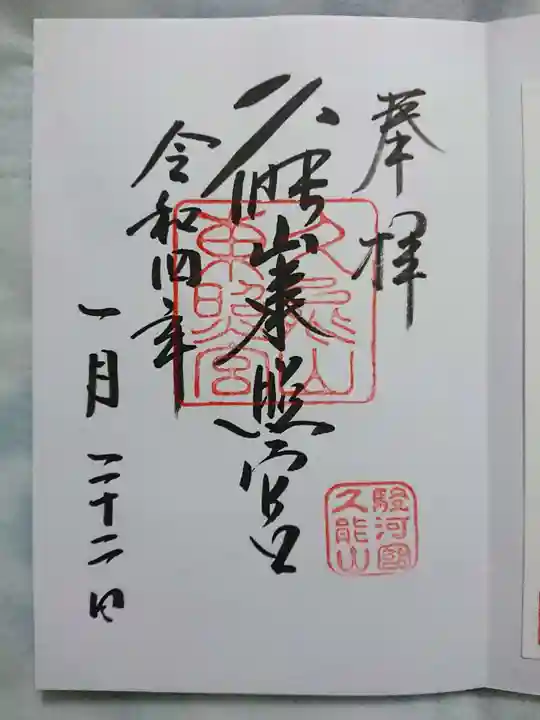 奉拝
久能山東照宮
令和四年
一月二十二日
久能山
東照宮
駿河國
久能山